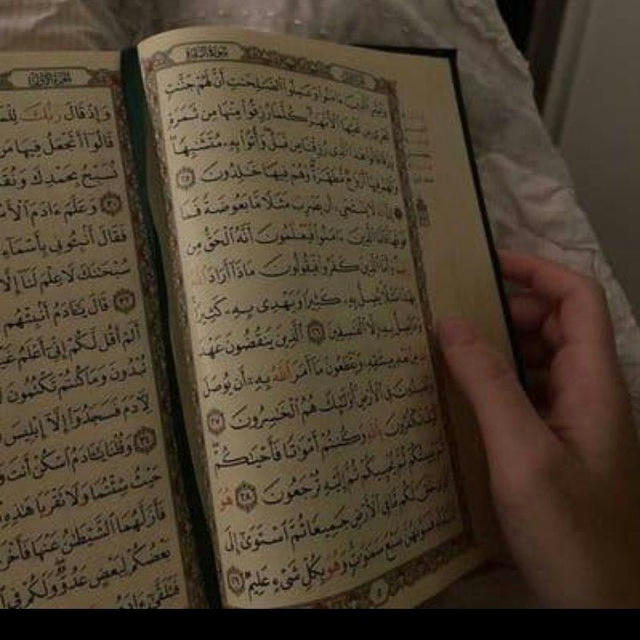 سورة البقرة
وَبَشِّرِ الَّذِينَ ءَامَنُوا وَعَمِلُوا الصَّٰلِحَٰتِ أَنَّ لَهُمْ جَنَّٰتٍ
تَجْرِي مِن تَحْتِهَا الْأَنْهَٰرُ كُلَّمَا رُزِقُوا مِنْهَا مِن ثَمَرَةٍ
رِّزْقًا قَالُوا هَٰذَا الَّذِي رُزِقْنَا مِن قَبْلُ وَأُتُوا بِهِ مُتَشَٰبِهًا
وَلَهُمْ فِيهَا أَزْوَٰجٌ مُّطَهَّرَةٌ وَهُمْ فِيهَا خَٰلِدُونَ ٢٥
إِنَّ اللَّهَ لَا يَسْتَحْيِي أَن يَضْرِبَ مَثَلًا مَّا بَعُوضَةً فَمَا
فَوْقَهَا فَأَمَّا الَّذِينَ ءَامَنُوا فَيَعْلَمُونَ أَنَّهُ الْحَقُّ مِن
رَّبِّهِمْ وَأَمَّا الَّذِينَ كَفَرُوا فَيَقُولُونَ مَاذَا أَرَادَ اللَّهُ
بِهَٰذَا مَثَلًا يُضِلُّ بِهِ كَثِيرًا وَيَهْدِي بِهِ كَثِيرًا
وَمَا يُضِلُّ بِهِ إِلَّا الْفَٰسِقِينَ ٢٦ الَّذِينَ يَنقُضُونَ عَهْدَ
اللَّهِ مِن بَعْدِ مِيثَٰقِهِ وَيَقْطَعُونَ مَا أَمَرَ اللَّهُ بِهِ أَن يُوصَلَ
وَيُفْسِدُونَ فِي الْأَرْضِ أُولَٰئِكَ هُمُ الْخَٰسِرُونَ ٢٧
كَيْفَ تَكْفُرُونَ بِاللَّهِ وَكُنتُمْ أَمْوَٰتًا فَأَحْيَٰكُمْ
ثُمَّ يُمِيتُكُمْ ثُمَّ يُحْيِيكُمْ ثُمَّ إِلَيْهِ تُرْجَعُونَ ٢٨ هُوَ
الَّذِي خَلَقَ لَكُم مَّا فِي الْأَرْضِ جَمِيعًا ثُمَّ اسْتَوَىٰ إِلَى
السَّمَاءِ فَسَوَّىٰهُنَّ سَبْعَ سَمَٰوَٰتٍ وَهُوَ بِكُلِّ شَيْءٍ عَلِيمٌ ٢٩
٥
وَإِذْ قَالَ رَبُّكَ
قَالُوا أَتَجْعَلُ فِيهَا مَن
نُسَبِّحُ بِحَمْدِكَ وَنُقَدِّسُ
٣٠ وَعَلَّمَ ءَادَمَ
فَقَالَ أَنبِئُونِي بِأَسْمَاءِ
سُبْحَٰنَكَ لَا عِلْمَ لَنَا إِلَّا
٣٢ قَالَ يَٰـَٔادَمُ أَنبِئْهُم
أَلَمْ أَقُل لَّكُمْ إِنِّي أَعْلَمُ
تُبْدُونَ وَمَا كُنتُمْ تَكْتُمُونَ
لِءَادَمَ فَسَجَدُوا إِلَّا إِبْلِيسَ
٣٤ وَقُلْنَا يَٰـَٔادَمُ اسْكُنْ أَنتَ
حَيْثُ شِئْتُمَا وَلَا تَقْرَبَا هَٰذِهِ
فَأَزَلَّهُمَا الشَّيْطَٰنُ عَنْهَا
بَعْضُكُمْ لِبَعْضٍ عَدُوٌّ وَلَكُمْ فِي
فَتَلَقَّىٰ